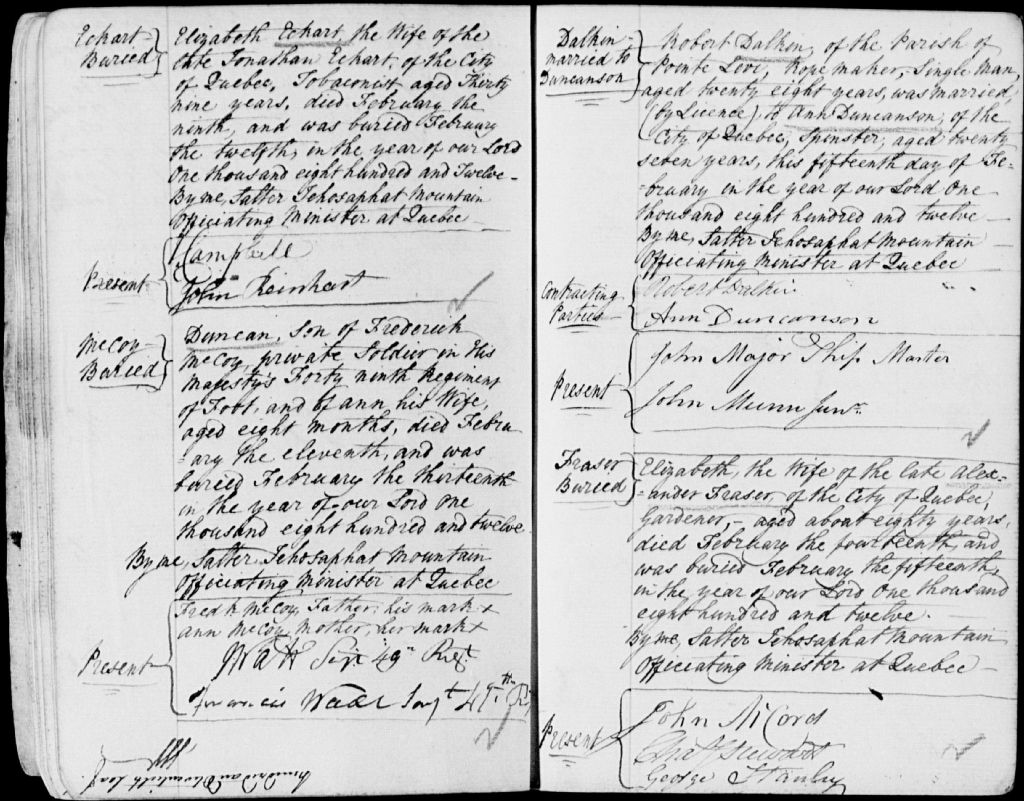 Eckart
Buried
Elizabeth Eckart, the Wife of the
late Jonathan Eckart, of the City
of Quebec, Tobaconist aged Thirty
nine years, died February the
ninth, and was buried February
the twelfth, in the year of our Lord
One thousand eight hundred and Twelve -
By me, Salter Jehosaphat Mountain
Officiating Minister at Quebec
Present
Campbell
John Reinhart
McCoy
Buried
Duncan, Son of Frederick
McCoy, private Soldier in His
Majesty's Forty ninth Regiment
of Foot, and of Ann his Wife,
aged eight Months, died Febru
=ary the eleventh, and was
buried February the thirteenth
in the year of our Lord One
thousand eight hundred and twelve
By me, Salter Jehosaphat Mountain
Officiating Minister at Quebec
Present
Fredk McCoy, Father, his mark x
Ann McCoy Mother, her mark x
Sejt 49th Regt
Francis Wade Sargt 49th R
111
hundred and eleventh leaf
Dalkin
married to
Duncanson
Robert Dalkin, of the Parish of
Pointe Levi, Rope maker, Single Man,
aged twenty eight years, was married,
(by Licence) to Ann Duncanson, of the
City of Quebec, Spinster, aged twenty
seven years, this fifteenth day of Fe-
-bruary in the year of our Lord One
thousand eight hundred and twelve
By me, Salter Jehosaphat Mountain
Officiating Minister at Quebec
Contracting
Parties
Robert Dalkin
Ann Duncanson
Present
John Major Ship Master
John Munn Junr.
Fraser
Buried
Elizabeth, the Wife of the late Alex-
=ander Fraser, of the City of Quebec,
Gardener, - aged about eighty years,
died February the fourteenth, and
was buried February the fifteenth,
in the year of our Lord One thousand
eight hundred and twelve.
By me, Salter Jehosaphat Mountain
Officiating Minister at Quebec -
Present
John McCord
Chas Stewart
George Stanley